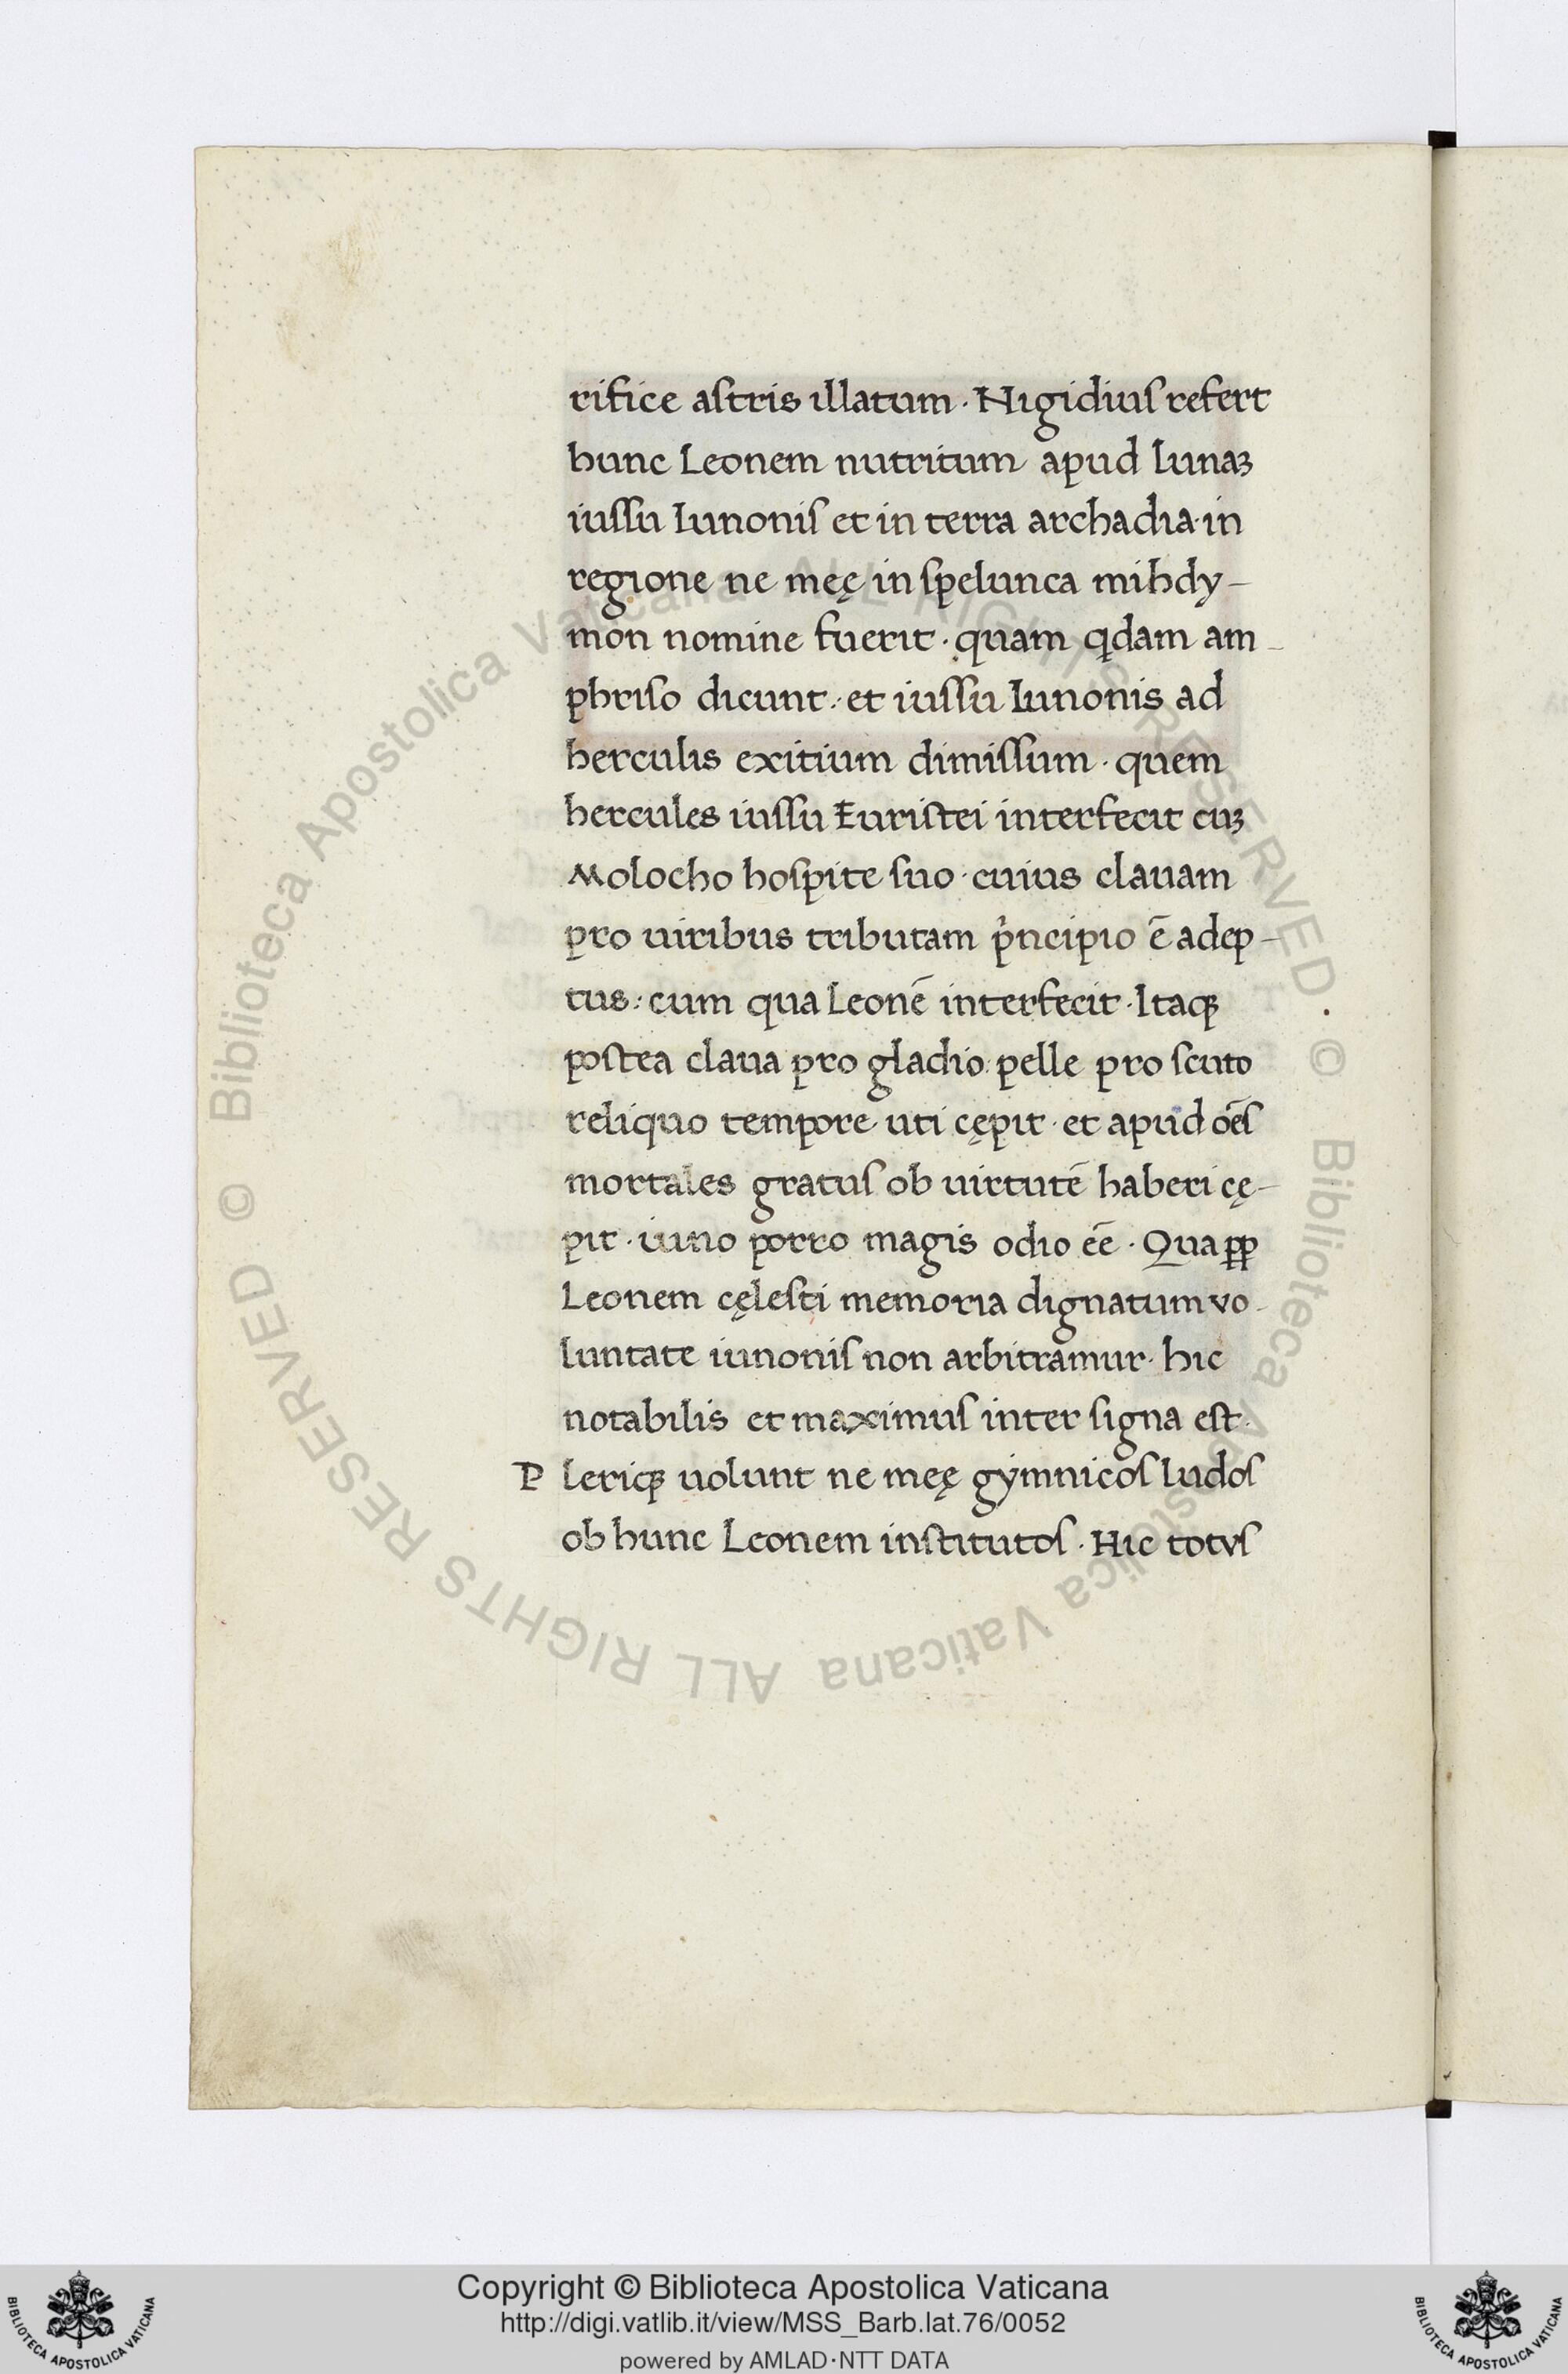 rifice astris illatum · Nigidius refert
hunc Leonem nutritum apud lunaꝫ
iussu Iunonis et in terra archadia · in
regione ne meę in spelunca mihdy-
mon nomine fuerit · quam qdam am-
phriso dicunt : et iussu Iunonis ad
herculis exitium dimissum · quem
hercules iussu Euristei interfecit cuꝫ
Molocho hospite suo · cuius clauam
pro uiribus tributam pͥncipio ē adep-
tus : cum qua Leonē interfecit · Itaqꝫ
postea claua pro gladio : pelle pro scuto
reliquo tempore uti cępit · et apud oēs
mortales gratus ob uirtutē haberi cę-
pit · iuno porro magis odio eē · Quapp
Leonem cęlesti memoria dignatum vo-
luntate iunonis non arbitramur · hic
notabilis et maximus inter signa est ·
P leriqꝫ uolunt ne meę gymnicos ludos
ob hunc Leonem institutos · Hic totvs
© Biblioteca Apostolica Vaticana ALL RIGHTS RESERVED · © Biblioteca Apostolica Vaticana ALL RIGHTS RESERVED
Copyright © Biblioteca Apostolica Vaticana
http://digi.vatlib.it/view/MSS_Barb.lat.76/0052
powered by AMLAD·NTT DATA
BIBLIOTECA APOSTOLICA VATICANA
BIBLIOTECA APOSTOLICA VATICANA